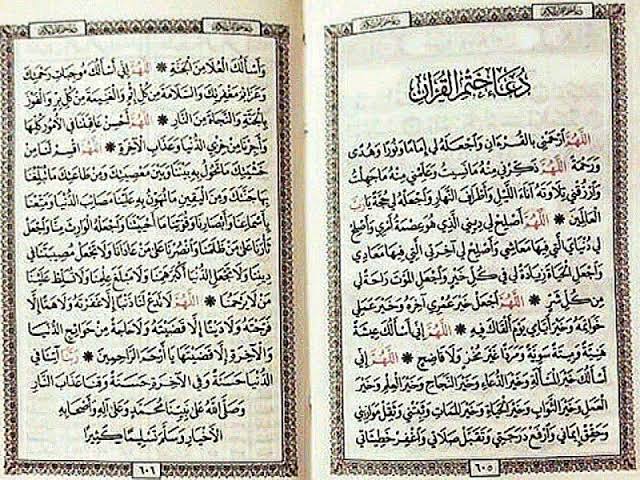 دعاء ختم القرآن
دُعَاءُ خَتْمِ القُرْآنِ
اللَّهُمَّ ارْحَمْنِي بِالقُرْءَانِ وَاجْعَلْهُ لِي إِمَامًا وَنُورًا وَهُدًى
وَرَحْمَةً اللَّهُمَّ ذَكِّرْنِي مِنْهُ مَا نَسِيتُ وَعَلِّمْنِي مِنْهُ مَا جَهِلْتُ
وَارْزُقْنِي تِلَاوَتَهُ آنَاءَ اللَّيْلِ وَأَطْرَافَ النَّهَارِ وَاجْعَلْهُ لِي حُجَّةً يَا رَبَّ
العَالَمِينَ * اللَّهُمَّ أَصْلِحْ لِي دِينِي الَّذِي هُوَ عِصْمَةُ أَمْرِي وَأَصْلِحْ
لِي دُنْيَايَ الَّتِي فِيهَا مَعَاشِي وَأَصْلِحْ لِي آخِرَتِي الَّتِي فِيهَا مَعَادِي
وَاجْعَلِ الحَيَاةَ زِيَادَةً لِي فِي كُلِّ خَيْرٍ وَاجْعَلِ المَوْتَ رَاحَةً لِي
مِن كُلِّ شَرٍّ * اللَّهُمَّ اجْعَلْ خَيْرَ عُمْرِي آخِرَهُ وَخَيْرَ عَمَلِي
خَوَاتِمَهُ وَخَيْرَ أَيَّامِي يَوْمَ أَلْقَاكَ فِيهِ * اللَّهُمَّ إِنِّي أَسْأَلُكَ عِيشَةً
هَنِيَّةً وَمِيتَةً سَوِيَّةً وَمَرَدًّا غَيْرَ مُخْزٍ وَلَا فَاضِحٍ * اللَّهُمَّ إِنِّي
أَسْأَلُكَ خَيْرَ المَسْأَلَةِ وَخَيْرَ الدُّعَاءِ وَخَيْرَ النَّجَاحِ وَخَيْرَ العِلْمِ وَخَيْرَ
العَمَلِ وَخَيْرَ الثَّوَابِ وَخَيْرَ الحَيَاةِ وَخَيْرَ المَمَاتِ وَثَبِّتْنِي وَثَقِّلْ مَوَازِينِي
وَحَقِّقْ إِيمَانِي وَارْفَعْ دَرَجَتِي وَتَقَبَّلْ صَلَاتِي وَاغْفِرْ خَطِيئَاتِي
٦٠٥
وَأَسْأَلُكَ العُلَا مِنَ الجَنَّةِ * اللَّهُمَّ إِنِّي أَسْأَلُكَ مُوجِبَاتِ رَحْمَتِكَ
وَعَزَائِمَ مَغْفِرَتِكَ وَالسَّلَامَةَ مِن كُلِّ إِثْمٍ وَالغَنِيمَةَ مِن كُلِّ بِرٍّ وَالفَوْزَ
بِالجَنَّةِ وَالنَّجَاةَ مِنَ النَّارِ * اللَّهُمَّ أَحْسِنْ عَاقِبَتَنَا فِي الأُمُورِ كُلِّهَا
وَأَجِرْنَا مِنْ خِزْيِ الدُّنْيَا وَعَذَابِ الآخِرَةِ * اللَّهُمَّ اقْسِمْ لَنَا مِنْ
خَشْيَتِكَ مَا تَحُولُ بِهِ بَيْنَنَا وَبَيْنَ مَعْصِيَتِكَ وَمِن طَاعَتِكَ مَا تُبَلِّغُنَا
بِهَا جَنَّتَكَ وَمِنَ اليَقِينِ مَا تُهَوِّنُ بِهِ عَلَيْنَا مَصَائِبَ الدُّنْيَا وَمَتِّعْنَا
بِأَسْمَاعِنَا وَأَبْصَارِنَا وَقُوَّتِنَا مَا أَحْيَيْتَنَا وَاجْعَلْهُ الوَارِثَ مِنَّا وَاجْعَلْ
ثَأْرَنَا عَلَى مَن ظَلَمَنَا وَانصُرْنَا عَلَى مَنْ عَادَانَا وَلَا تَجْعَلْ مُصِيبَتَنَا فِي
دِينِنَا وَلَا تَجْعَلِ الدُّنْيَا أَكْبَرَ هَمِّنَا وَلَا مَبْلَغَ عِلْمِنَا وَلَا تُسَلِّطْ عَلَيْنَا
مَن لَا يَرْحَمُنَا * اللَّهُمَّ لَا تَدَعْ لَنَا ذَنْبًا إِلَّا غَفَرْتَهُ وَلَا هَمًّا إِلَّا
فَرَّجْتَهُ وَلَا دَيْنًا إِلَّا قَضَيْتَهُ وَلَا حَاجَةً مِنْ حَوَائِجِ الدُّنْيَا
وَالآخِرَةِ إِلَّا قَضَيْتَهَا يَا أَرْحَمَ الرَّاحِمِينَ * رَبَّنَا آتِنَا فِي
الدُّنْيَا حَسَنَةً وَفِي الآخِرَةِ حَسَنَةً وَقِنَا عَذَابَ النَّارِ
وَصَلَّى اللهُ عَلَى نَبِيِّنَا مُحَمَّدٍ وَعَلَى آلِهِ وَأَصْحَابِهِ
الأَخْيَارِ وَسَلَّمَ تَسْلِيمًا كَثِيرًا
٦٠٦